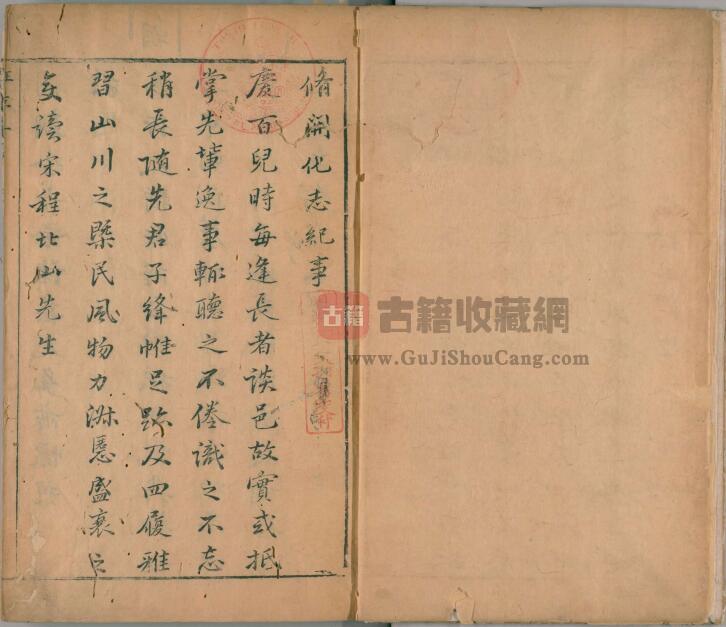 脩開化志紀事
慶百兒時每逢長者談邑故實或抵
掌先輩逸事輙聽之不倦識之不忘
稍長随先君子絳帷足跡及四履雅
習山川之槩民風物力淑慝盛衰之
友读宋程北山先生
古籍
古籍收藏網
www.GuJiShouCang.com